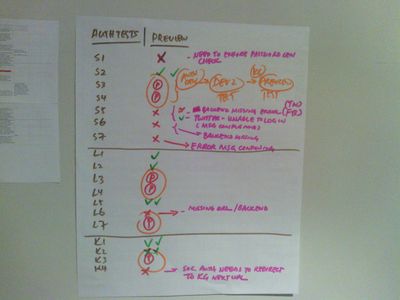 AUTH TESTS PREVIEW
S1 x - NEED TO ENSURE PASSWORD GEN
CHECK
S2 ✓ ✓
S3 P DEV2 PREPROD
S4 P TEST TEST
S5 x BACKEND MISSING ERROR
S6 x ✓ TWITTER - UNABLE TO LOGIN
(MSG CONFIRMING)
S7 x BACKEND MISSING
ERROR MSG CONFUSING
L1 ✓
L2 ✓
L3 P
L4 P
L5 ✓ ✓
L6 x - MISSING URL / BACKEND
L7 P
K1 ✓ ✓
K2
K3 P
K4 x - SOC AUTH NEEDS TO REDIRECT
TO KG NEXT URL